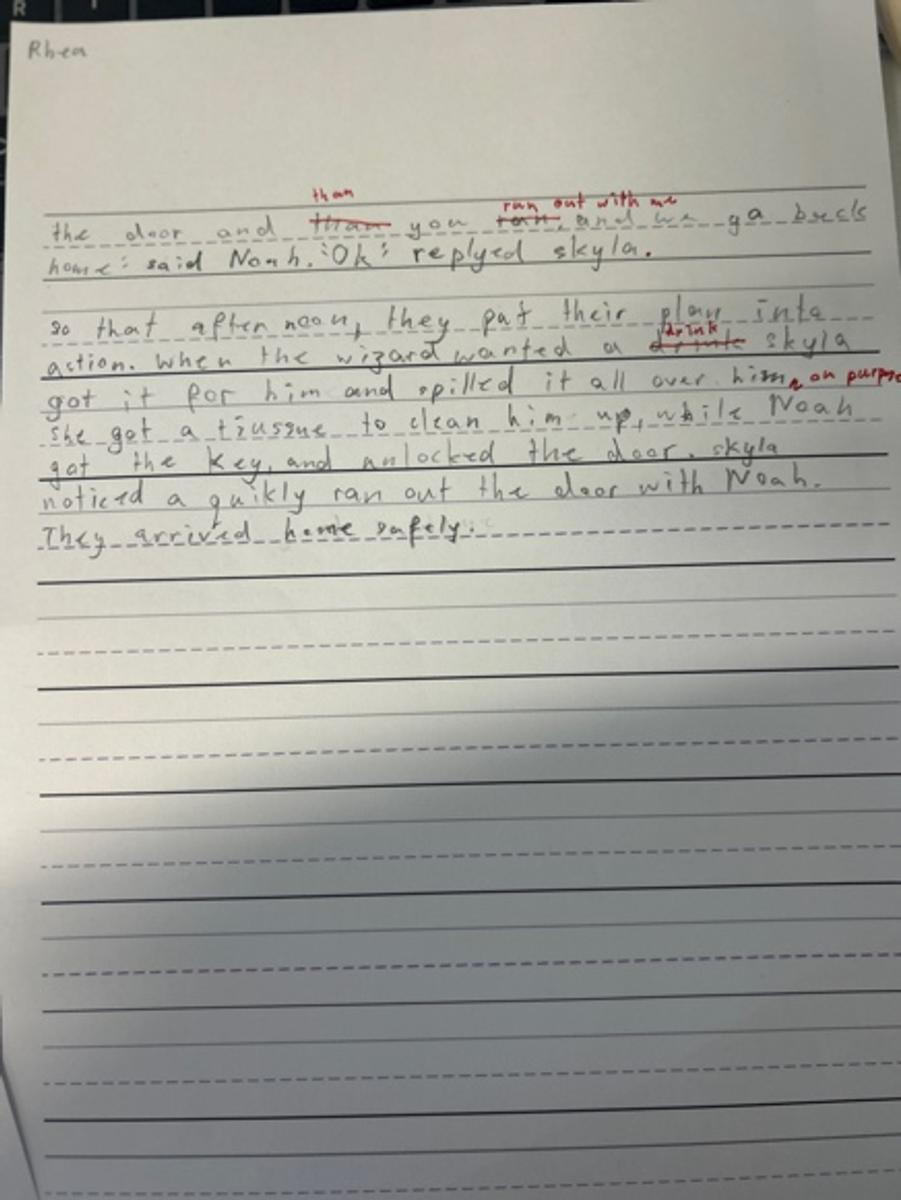 Rhea
than
run out with me
the door and than you ran, and we go back
home" said Noah. "Ok" replyed skyla.
so that after noon, they put their plan into
drink
action. When the wizard wanted a drink skyla
got it for him and spilled it all over him, on purpose
she got a tiussue to clean him up, while Noah
got the key, and unlocked the door. skyla
noticed a quikly ran out the door with Noah.
They arrived home safely.